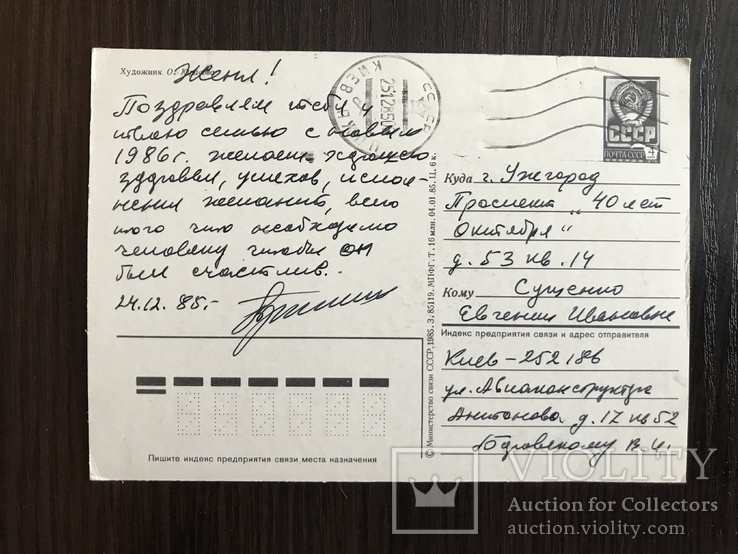 Художник О.
Женя!
Поздравляем тебя и
твою семью с новым
1986 г. желаем хорошего
здоровья, успехов, испол-
нения желаний, всего
того что необходимо
человеку чтобы он
был счастлив.-
24.12.85.-
КИЕВ
СССР
251285
СССР
ПОЧТА СССР
4
Куда г. Ужгород
Проспект "40 лет
Октября"
д. 53 кв. 14
Кому Сущенко
Евгении Ивановне
Индекс предприятия связи и адрес отправителя
Киев-252186
ул. Авиаконструктора
Антонова д. 17 кв 52
В. И.
© Министерство связи СССР, 1985. З. 85119. МПФГ. Т. 16 млн. 04.01.85. Ц. 6 к.
Пишите индекс предприятия связи места назначения
VIOLITY
Auction for Collectors
auction.violity.com